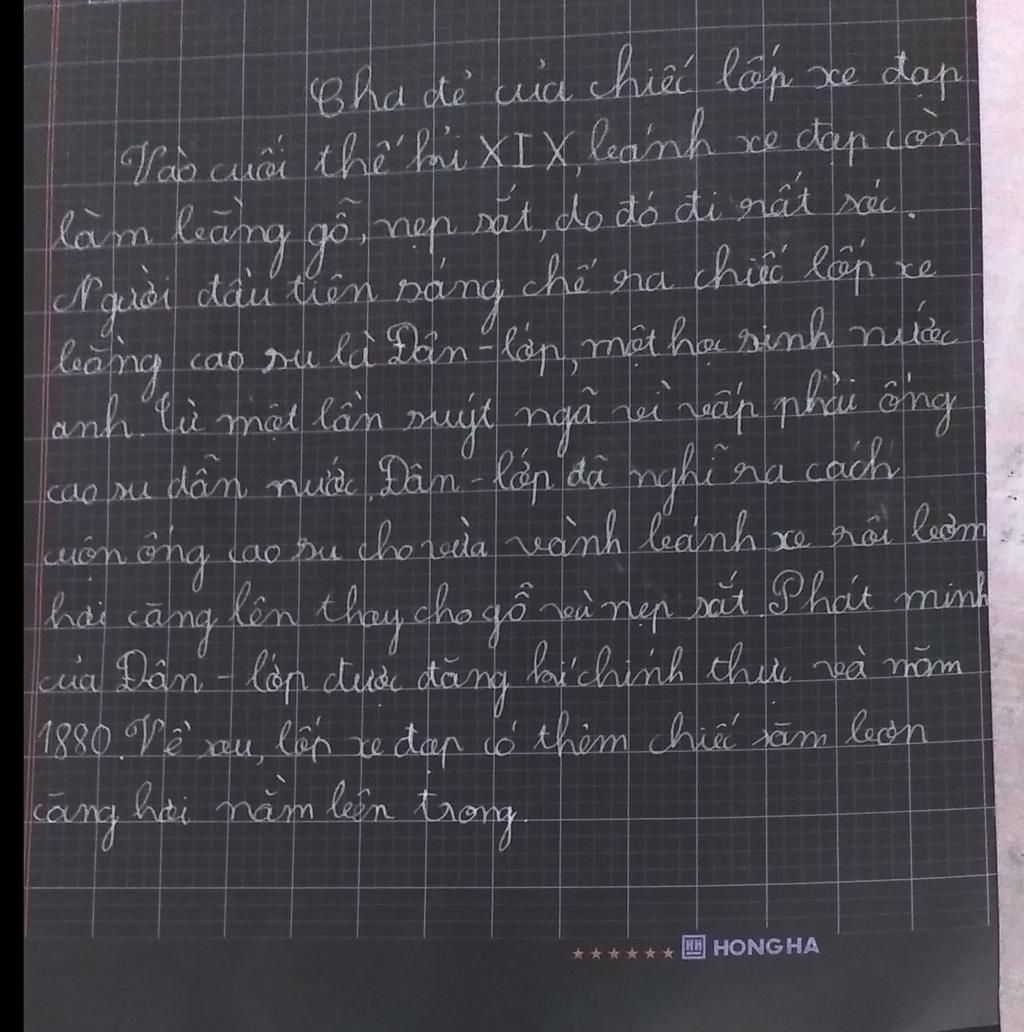 Cha đẻ của chiếc lốp xe đạp
Vào cuối thế kỉ XIX, bánh xe đạp còn
làm bằng gỗ, nẹp sắt, do đó đi rất xóc.
Người đầu tiên sáng chế ra chiếc lốp xe
bằng cao su là Đân-lớp, một học sinh nước
anh. Từ một lần suýt ngã vì vấp phải ống
cao su dẫn nước, Đân-lớp đã nghĩ ra cách
cuộn ống cao su cho vừa vành bánh xe rồi bơm
hơi căng lên thay cho gỗ và nẹp sắt. Phát minh
của Đân-lớp được đăng kí chính thức và năm
1880. Về sau, lốp xe đạp có thêm chiếc săm bơn
căng hơi nằm bên trong.
HONG HA